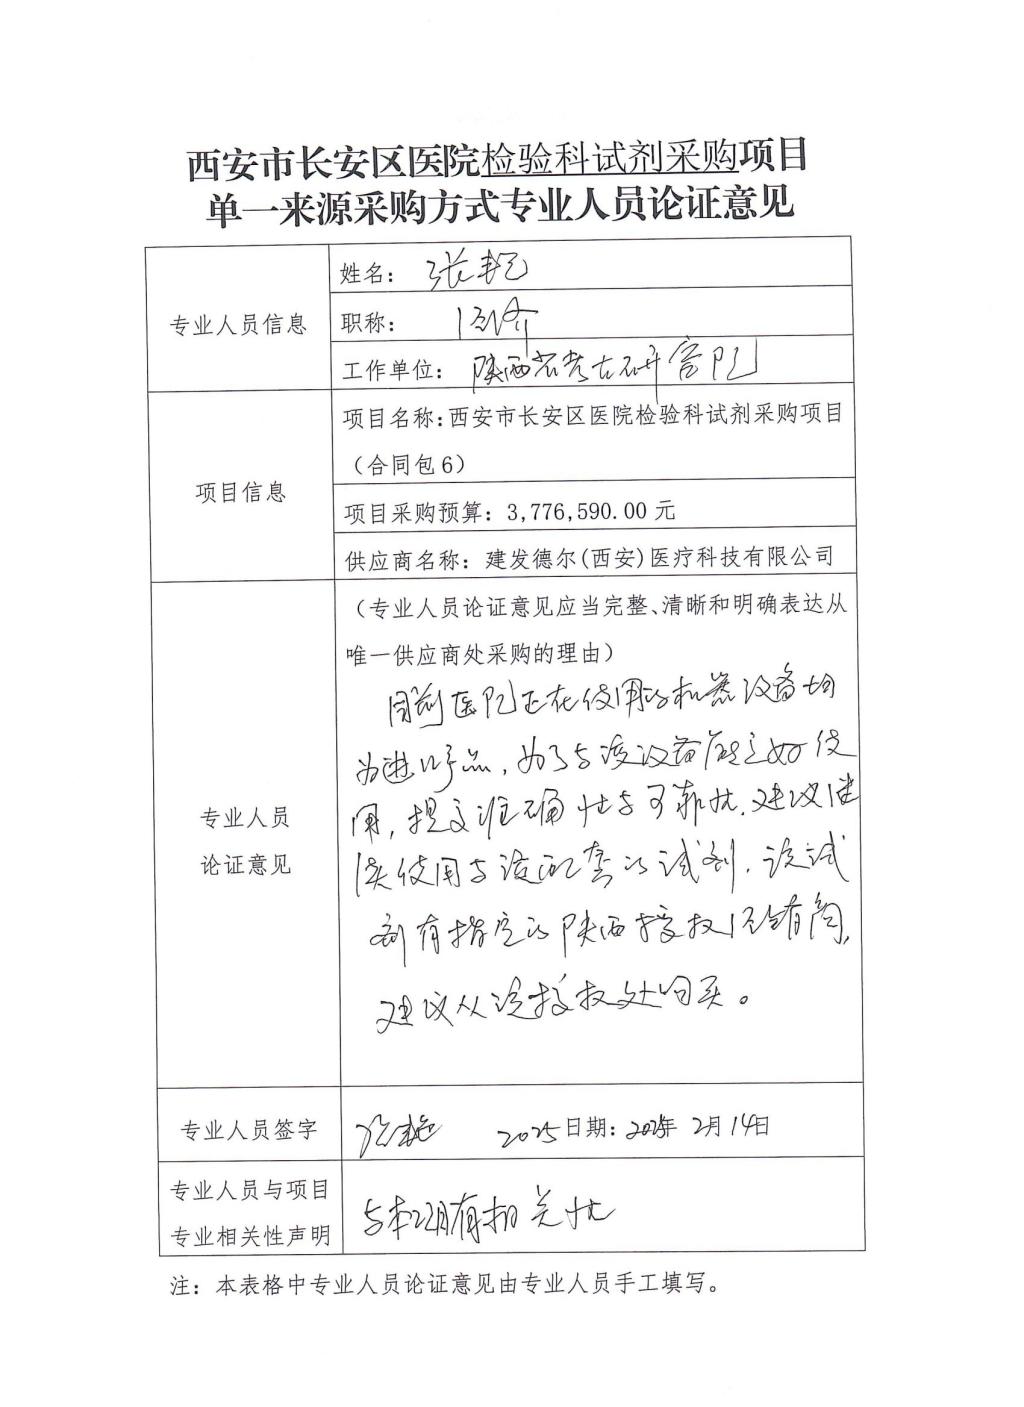 西安市长安区医院检验科试剂采购项目
单一来源采购方式专业人员论证意见
专业人员信息
姓名：张艳
职称：
工作单位：陕西省考古研究院
项目信息
项目名称:西安市长安区医院检验科试剂采购项目
（合同包6）
项目采购预算：3,776,590.00 元
供应商名称：建发德尔(西安)医疗科技有限公司
专业人员
论证意见
（专业人员论证意见应当完整、清晰和明确表达从
唯一供应商处采购的理由）
目前医院正在使用的机器设备均
为进口产品，为了与该设备更好使
用，提高准确性与可靠性，建议继
续使用与该配套的试剂，该试
剂有指定的陕西授权经销商，
建议从该授权处购买。
专业人员签字
张艳 2025日期：2025年 2月14日
专业人员与项目
专业相关性声明
与本项目有相关性
注：本表格中专业人员论证意见由专业人员手工填写。